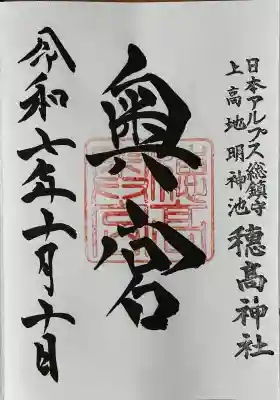 日本アルプス総鎮守
上高地明神池 穂高神社
奥宮
令和七年十月十日